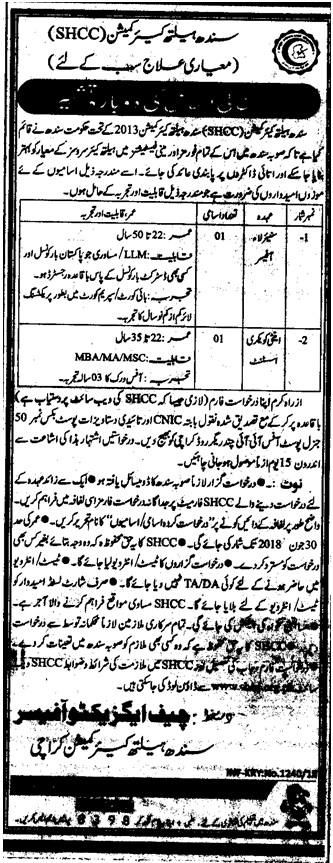 سندھ ہیلتھ کیئر کمیشن (SHCC)
(معیاری علاج سب کے لئے)
سندھ ہیلتھ کیئر کمیشن (SHCC) سندھ ہیلتھ کیئر کمیشن 2013 کے تحت حکومت سندھ نے قائم
کیا ہے تاکہ صوبہ سندھ میں اس کے تمام فورمز اور میں ہیلتھ کیئر سروسز کے معیار کو بہتر
بنایا جا سکے اور اتائی ڈاکٹروں پر پابندی عائد کی جائے۔ اسے مندرجہ ذیل اسامیوں کے لئے
موزوں امیدواروں کی ضرورت ہے جو مندرجہ ذیل قابلیت اور تجربہ کے حامل ہوں۔
نمبر شمار عہدہ تعداد اسامی عمر، قابلیت اور تجربہ
1- لاء آفیسر 01 عمر: 22 تا 50 سال
قابلیت: LLM/مساوی جو پاکستان بار کونسل اور
کسی بھی ڈسٹرکٹ بار کونسل کے پاس باقاعدہ رجسٹرڈ ہو۔
تجربہ: ہائی کورٹ/سپریم کورٹ میں بطور پریکٹسنگ
لائر کم از کم نو سال کا تجربہ
2- اینٹی کویکری اسسٹنٹ 01 عمر: 22 تا 35 سال
قابلیت: MBA/MA/MSC
تجربہ: آفس ورک کا 03 سالہ تجربہ
ازراہ کرم اپنا درخواست فارم (لازمی جیسا کہ SHCC کی ویب سائٹ پر دستیاب ہے)
باقاعدہ پر کر کے مع تصدیق شدہ نقول بابتہ CNIC اور تائیدی دستاویزات پوسٹ بکس نمبر 50
جنرل پوسٹ آفس آئی آئی چندریگر روڈ کراچی کو بھیج دیں۔ درخواستیں اشتہار ہذا کی اشاعت سے
اندرون 15 یوم از موصول ہو جانی چاہئیں۔
نوٹ:۔ درخواست گزار لازماً صوبہ سندھ کا ڈومیسائل یافتہ ہو ● ایک سے زائد عہدہ کے
لئے درخواست دینے والے SHCC فارمیٹ پر جداگانہ درخواست فارمز اسی لفافہ میں فراہم کریں۔
واضح طور پر لفافہ کے دائیں کونے پر "درخواست کردہ اسامی/اسامیوں" کا نام تحریر کریں۔ ● عمر کی حد
30 جون 2018 تک شمار کی جائے گی۔ ● SHCC کا یہ حق محفوظ ہے کہ وہ وجہ بتائے بغیر کسی بھی
درخواست کو مسترد کر دے۔ ● درخواست گزاروں کا ٹیسٹ/انٹرویو لیا جائے گا۔ ● ٹیسٹ/انٹرویو
میں حاضر ہونے کے لئے کوئی TA/DA نہیں دیا جائے گا۔ ● صرف شارٹ لسٹڈ امیدوار کو
ٹیسٹ/انٹرویو کے لئے بلایا جائے گا۔ SHCC مساوی مواقع فراہم کرنے والا آجر ہے۔
کی جائے گی۔ تمام سرکاری ملازمین لازماً محکمانہ توسط سے درخواست
SHCC کا یہ حق محفوظ ہے کہ وہ کسی بھی ملازم کو صوبہ سندھ میں تعینات کر دے
SHCC میں ملازمت کی شرائط و ضوابط SHCC
سے ڈاؤن لوڈ کی جا سکتی ہیں۔
دستخط: چیف ایگزیکٹو آفیسر
سندھ ہیلتھ کیئر کمیشن کراچی
INF-KRY:No.1240/18
8398